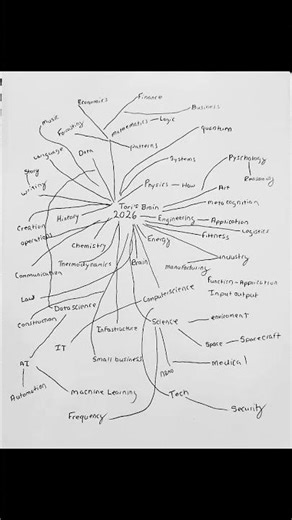 Economics
Finance
Business
music
Painting
mathematics - Logic
quantum
patterns
Language
Data
Systems
Pyschology
Reasoning
Story
writing
Physics - How
Art
Tori's Brain
2026
metacognition
Creation
History
Engineering - Application
Logistics
operations
Energy
Fitness
Chemistry
industry
Thermodynamics
Brain
manufacturing
Communication
Function - Application
Input output
Law
Computerscience
Data science
Construction
Infrastructure
Science
enviroment
IT
Space - Spacecraft
AI
Small business
Medical
nano
Automation
Machine Learning
Tech
Frequency
Security